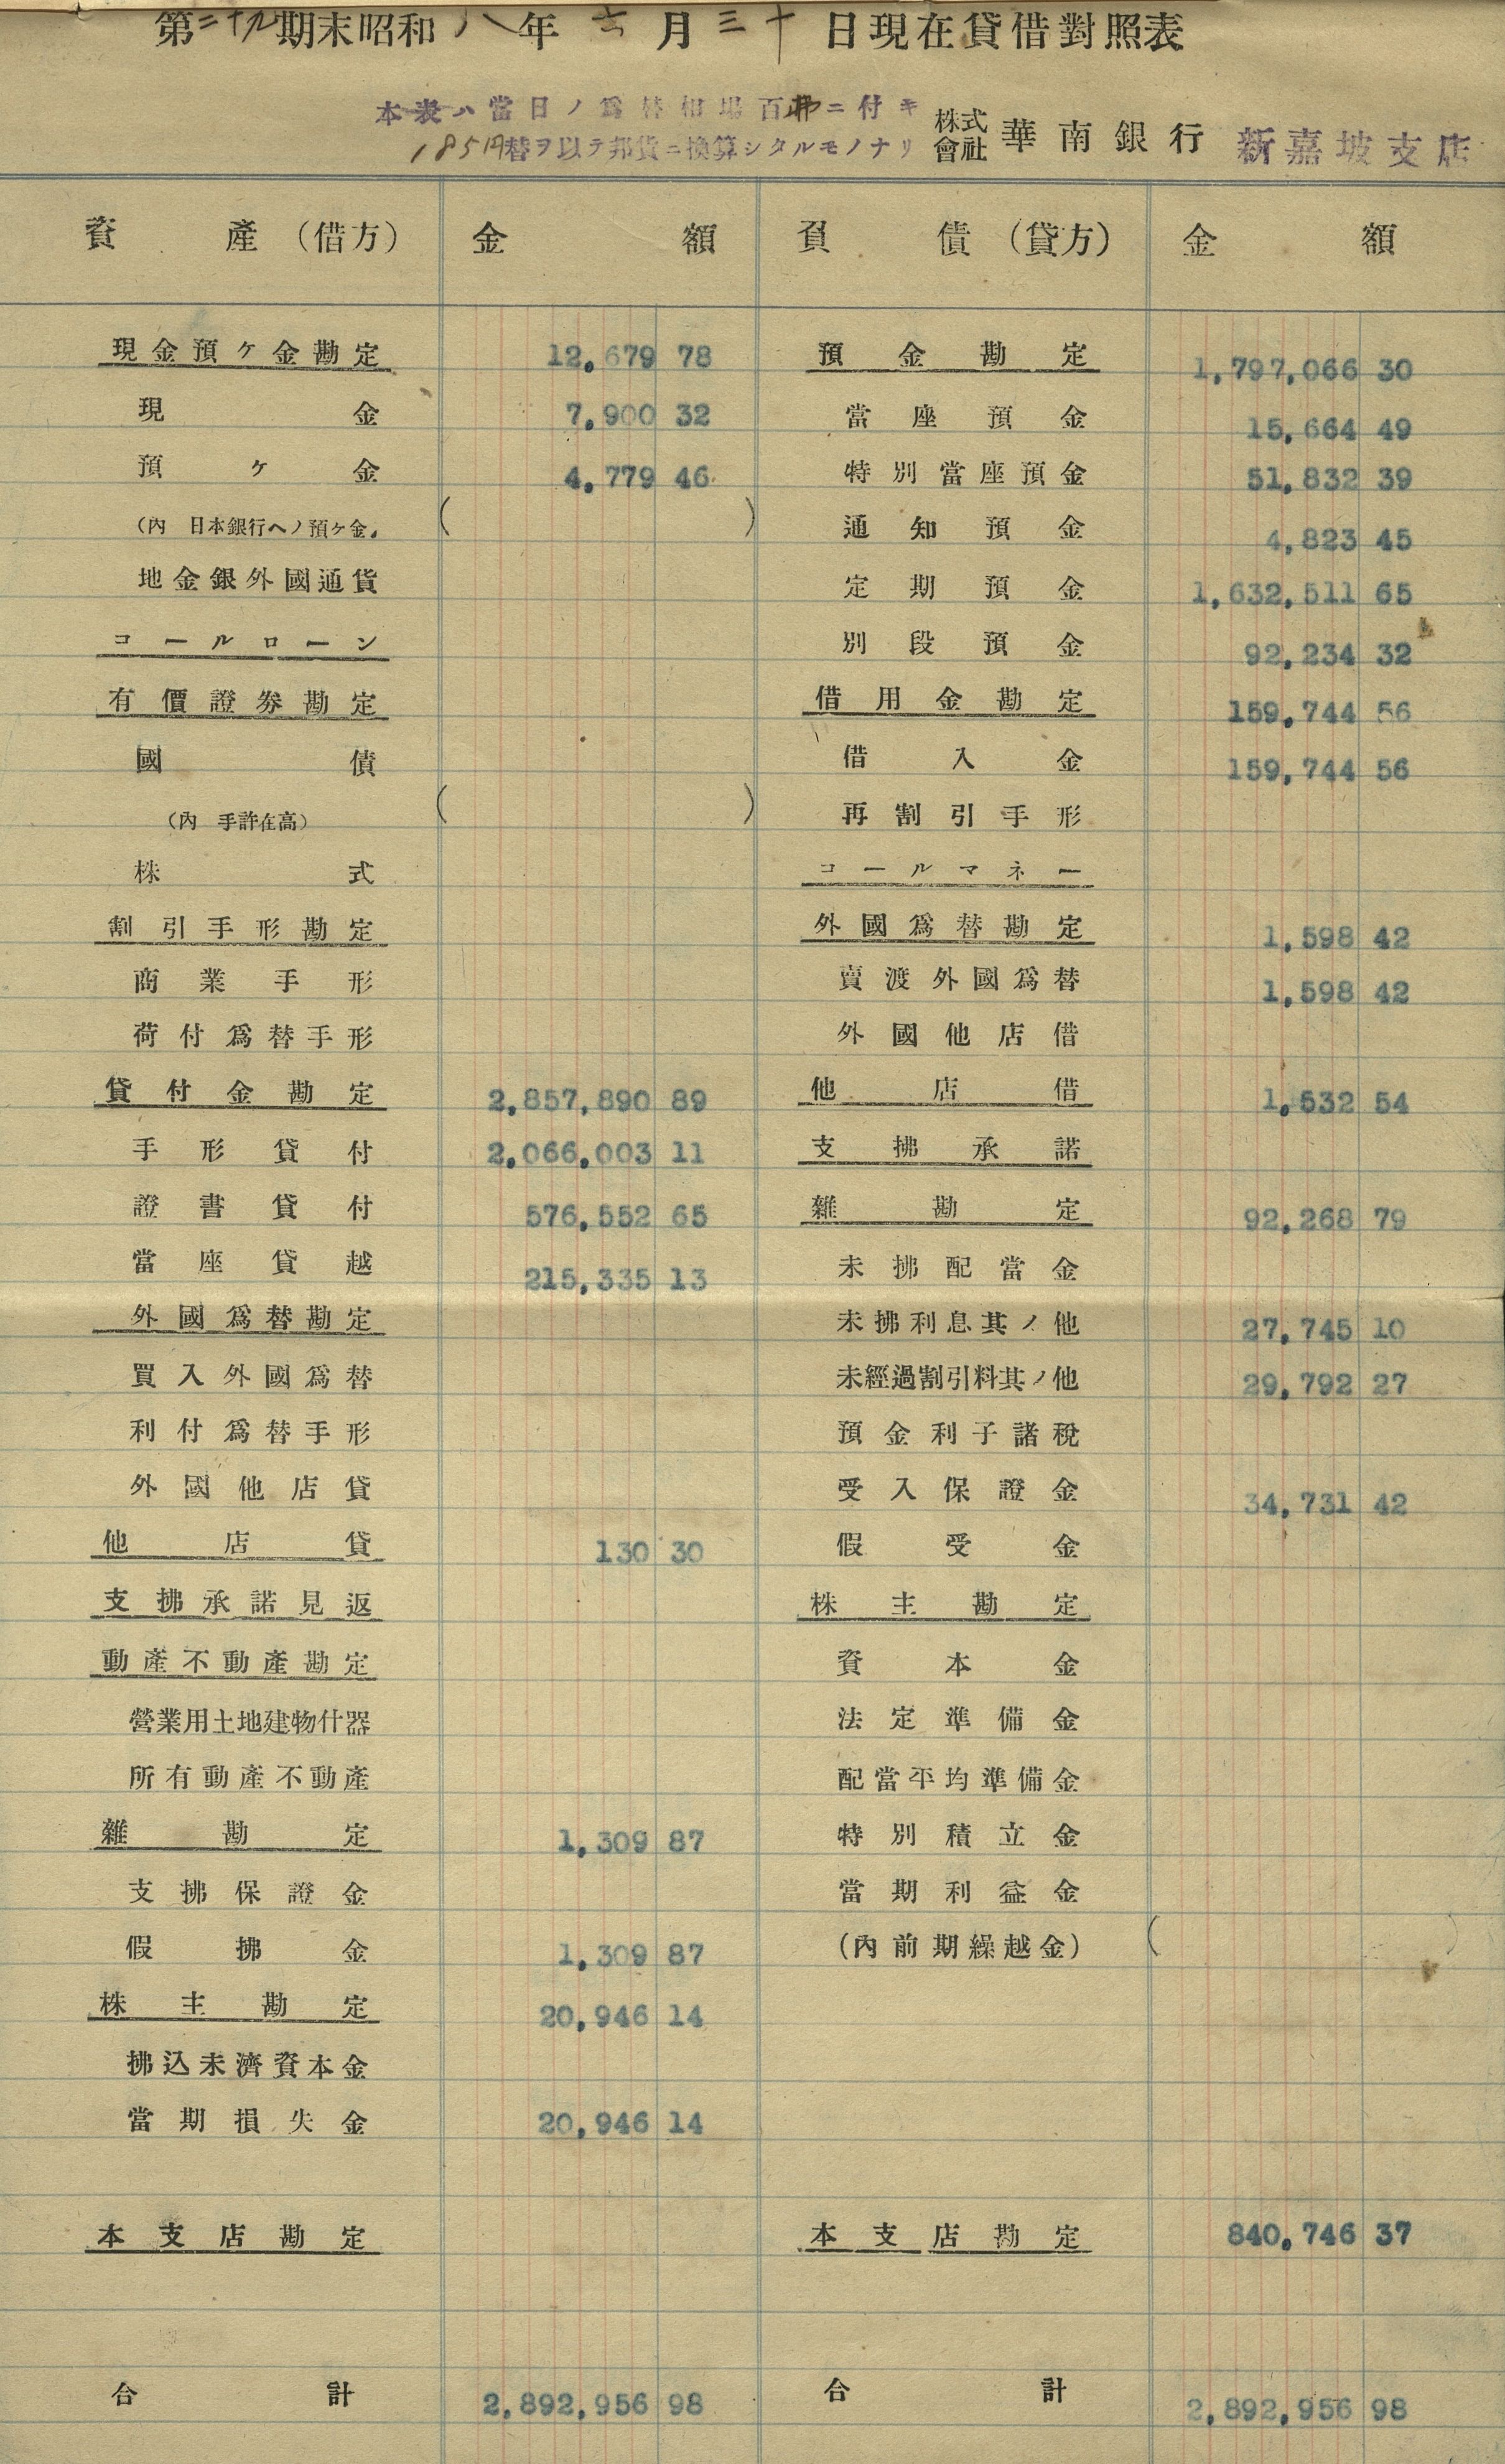 第二十九期末昭和八年六月三十日現在貸借對照表
本表ハ當日ノ爲替相場百弗ニ付キ
185円替ヲ以テ邦貨ニ換算シタルモノナリ
株式會社 華南銀行 新嘉坡支店
資產(借方) 金額 負債(貸方) 金額
現金預ケ金勘定 12,679 78 預金勘定 1,797,066 30
現金 7,900 32 當座預金 15,664 49
預ケ金 4,779 46 特別當座預金 51,832 39
(內 日本銀行ヘノ預ケ金) ( ) 通知預金 4,823 45
地金銀外國通貨 定期預金 1,632,511 65
コールローン 別段預金 92,234 32
有價證券勘定 借用金勘定 159,744 56
國債 借入金 159,744 56
(內 手許在高) ( ) 再割引手形
株式 コールマネー
割引手形勘定 外國爲替勘定 1,598 42
商業手形 賣渡外國爲替 1,598 42
荷付爲替手形 外國他店借
貸付金勘定 2,857,890 89 他店借 1,532 54
手形貸付 2,066,003 11 支拂承諾
證書貸付 576,552 65 雜勘定 92,268 79
當座貸越 215,335 13 未拂配當金
外國爲替勘定 未拂利息其ノ他 27,745 10
買入外國爲替 未經過割引料其ノ他 29,792 27
利付爲替手形 預金利子諸稅
外國他店貸 受入保證金 34,731 42
他店貸 130 30 假受金
支拂承諾見返 株主勘定
動產不動產勘定 資本金
營業用土地建物什器 法定準備金
所有動產不動產 配當平均準備金
雜勘定 1,309 87 特別積立金
支拂保證金 當期利益金
假拂金 1,309 87 (內前期繰越金) ( )
株主勘定 20,946 14
拂込未濟資本金
當期損失金 20,946 14
本支店勘定 本支店勘定 840,746 37
合計 2,892,956 98 合計 2,892,956 98